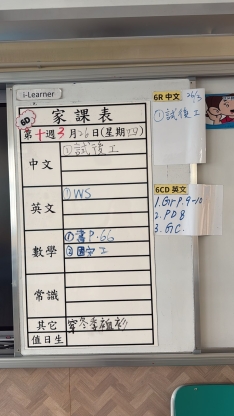 i-Learner
6D
家課表
第十週3月26日(星期四)
中文
①試後工
英文
①WS
數學
①書P.66
常識
其它
穿冬季
值日生
6R 中文
26/3
①試後工
6CD 英文
1.Gr P.9-10
2.PD8
3.GC.